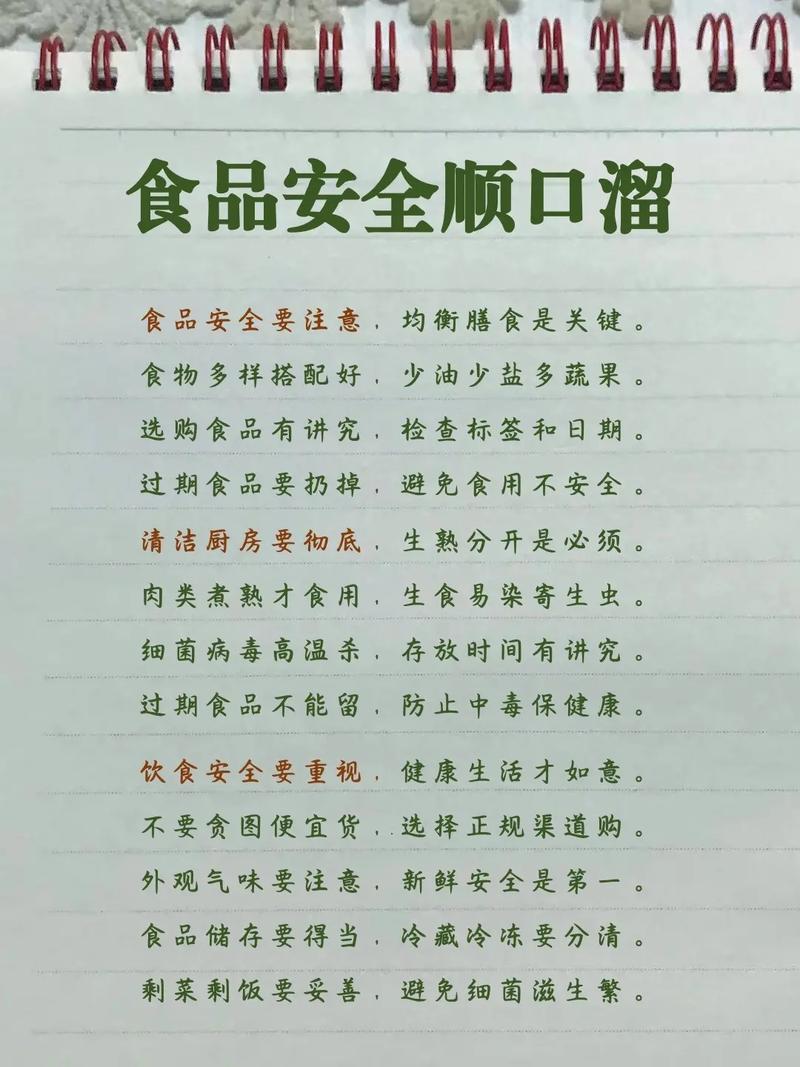 食品安全顺口溜
食品安全要注意，均衡膳食是关键。
食物多样搭配好，少油少盐多蔬果。
选购食品有讲究，检查标签和日期。
过期食品要扔掉，避免食用不安全。
清洁厨房要彻底，生熟分开是必须。
肉类煮熟才食用，生食易染寄生虫。
细菌病毒高温杀，存放时间有讲究。
过期食品不能留，防止中毒保健康。
饮食安全要重视，健康生活才如意。
不要贪图便宜货，选择正规渠道购。
外观气味要注意，新鲜安全是第一。
食品储存要得当，冷藏冷冻要分清。
剩菜剩饭要妥善，避免细菌滋生繁。